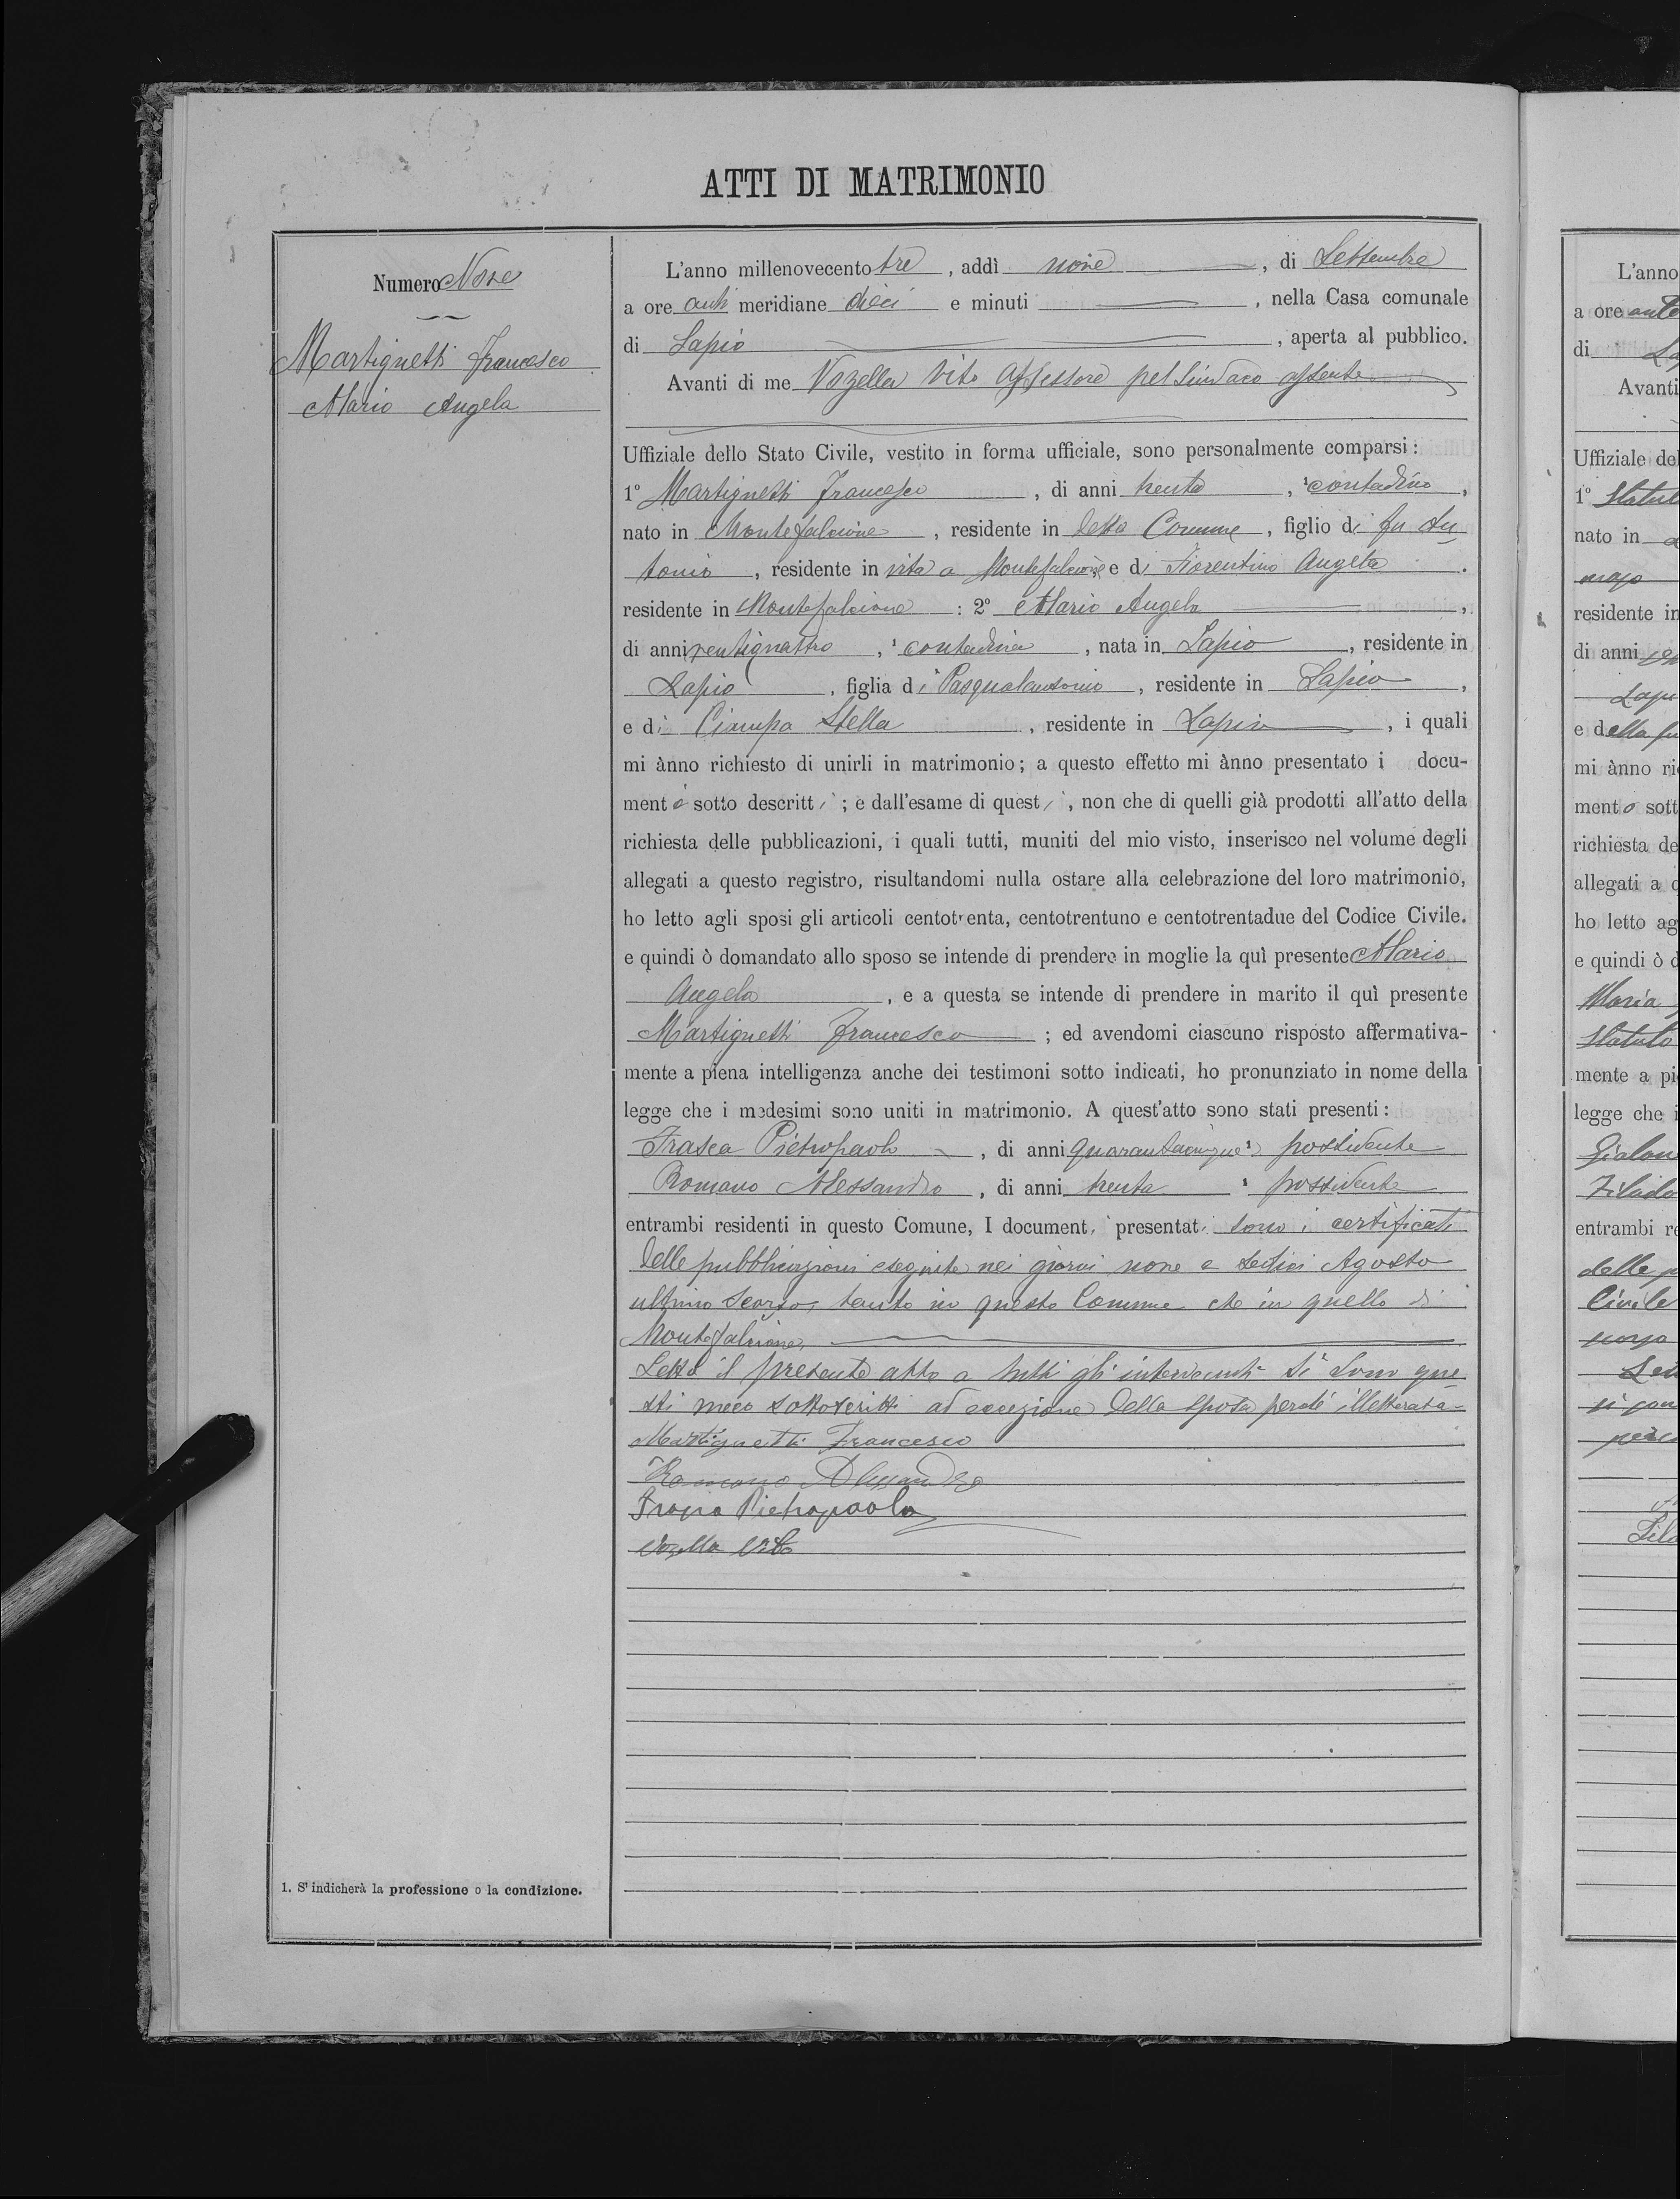 ATTI DI MATRIMONIO
Numero Nove
Martignetti Francesco
Alario Angela
1. S'indicherà la professione o la condizione.
L'anno millenovecento tre, addì nove, di Settembre
a ore anti meridiane dieci e minuti, nella Casa comunale
di Lapio, aperta al pubblico.
Avanti di me Vozella Vito Assessore pel Sindaco assente
Uffiziale dello Stato Civile, vestito in forma ufficiale, sono personalmente comparsi:
1° Martignetti Francesco, di anni trenta, ¹ contadino,
nato in Montefalcione, residente in detto Comune, figlio di fu An
tonio, residente in vita a Montefalcione e di Fiorentino Angela.
residente in Montefalcione: 2° Alario Angela,
di anni ventiquattro, ¹ contadina, nata in Lapio, residente in
Lapio, figlia di Pasqualantonio, residente in Lapio,
e di Ciampa Stella, residente in Lapio, i quali
mi ànno richiesto di unirli in matrimonio; a questo effetto mi ànno presentato i docu-
menti sotto descritti; e dall'esame di questi, non che di quelli già prodotti all'atto della
richiesta delle pubblicazioni, i quali tutti, muniti del mio visto, inserisco nel volume degli
allegati a questo registro, risultandomi nulla ostare alla celebrazione del loro matrimonio,
ho letto agli sposi gli articoli centotrenta, centotrentuno e centotrentadue del Codice Civile.
e quindi ò domandato allo sposo se intende di prendere in moglie la quì presente Alario
Angela, e a questa se intende di prendere in marito il quì presente
Martignetti Francesco; ed avendomi ciascuno risposto affermativa-
mente a piena intelligenza anche dei testimoni sotto indicati, ho pronunziato in nome della
legge che i medesimi sono uniti in matrimonio. A quest'atto sono stati presenti:
Frasca Pietropaolo, di anni quarantacinque ¹ possidente
Romano Alessandro, di anni trenta ¹ possidente
entrambi residenti in questo Comune, I documenti presentati sono i certificati
delle pubblicazioni eseguite nei giorni nove e sedici Agosto
ultimo scorso, tanto in questo Comune che in quello di
Montefalcione,
Letto il presente atto a tutti gli intervenuti si sono que
sti meco sottoscritti ad eccezione della sposa perché illetterata-
Martignetti Francesco
Romano Alessandro
Frasca Pietropaolo
Vozella Vito
L'anno
a ore ante
di La
Avanti
Uffiziale del
1°
nato in
residente in
di anni
e della fu
mi ànno ri
mento sott
richiesta de
allegati a q
ho letto ag
e quindi ò d
Maria
mente a pi
legge che i
entrambi re
delle p
Civile